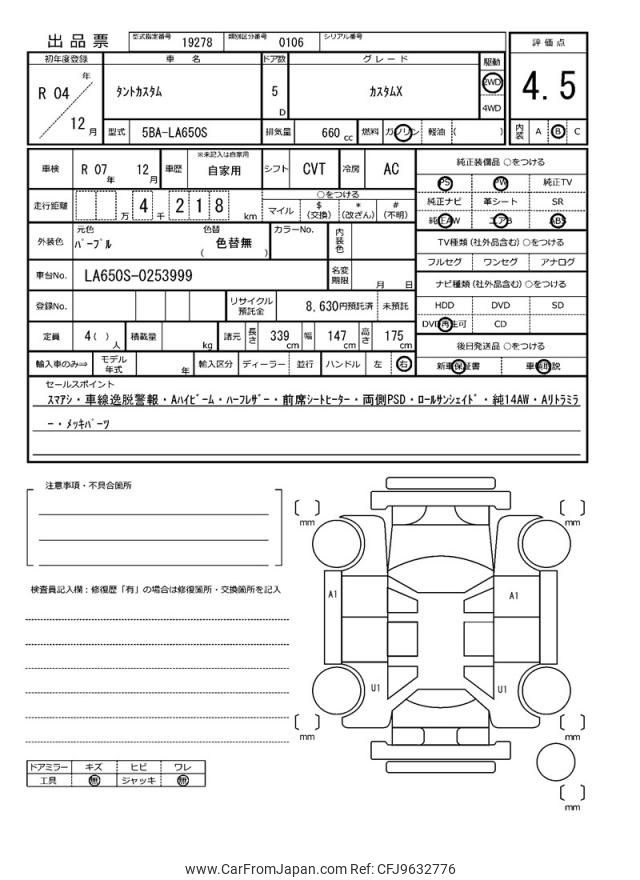 出品票 型式指定番号 19278 類別区分番号 0106 シリアル番号
初年度登録 車名 ドア数 グレード 駆動 評価点
R 04 年 12 月 タントカスタム 5 D カスタムX 2WD 4WD 4.5
型式 5BA-LA650S 排気量 660 cc 燃料 ガソリン 軽油 ( ) 内装 A B C
車検 R 07 年 12 月 車歴 ※未記入は自家用 自家用 シフト CVT 冷房 AC 純正装備品 ○をつける
PS PW 純正TV
走行距離 万 4 千 2 1 8 km ○をつける マイル $ (交換) * (改ざん) # (不明) 純正ナビ 革シート SR
純正AW エアB ABS
外装色 元色 パープル 色替 色替無 ( ) カラーNo. 内装色 TV種類 (社外品含む) ○をつける
フルセグ ワンセグ アナログ
車台No. LA650S-0253999 名変期限 月 日 ナビ種類 (社外品含む) ○をつける
登録No. リサイクル預託金 8,630円預託済 未預託 HDD DVD SD
DVD再生可 CD
定員 4( ) 人 積載量 kg 諸元 長さ 339 cm 幅 147 cm 高さ 175 cm 後日発送品 ○をつける
輸入車のみ⇒ モデル年式 年 輸入区分 ディーラー 並行 ハンドル 左 右 新車保証書 車輌取説
セールスポイント
スマアシ・車線逸脱警報・Aハイビーム・ハーフレザー・前席シートヒーター・両側PSD・ロールサンシェイド・純14AW・Aリトラミラ
ー・メッキパーツ
注意事項・不具合箇所
検査員記入欄：修復歴「有」の場合は修復箇所・交換箇所を記入
ドアミラー キズ ヒビ ワレ
工具 無 ジャッキ 無
mm
mm
A1
A1
U1
U1
mm
mm
mm
www.CarFromJapan.com Ref: CFJ9632776